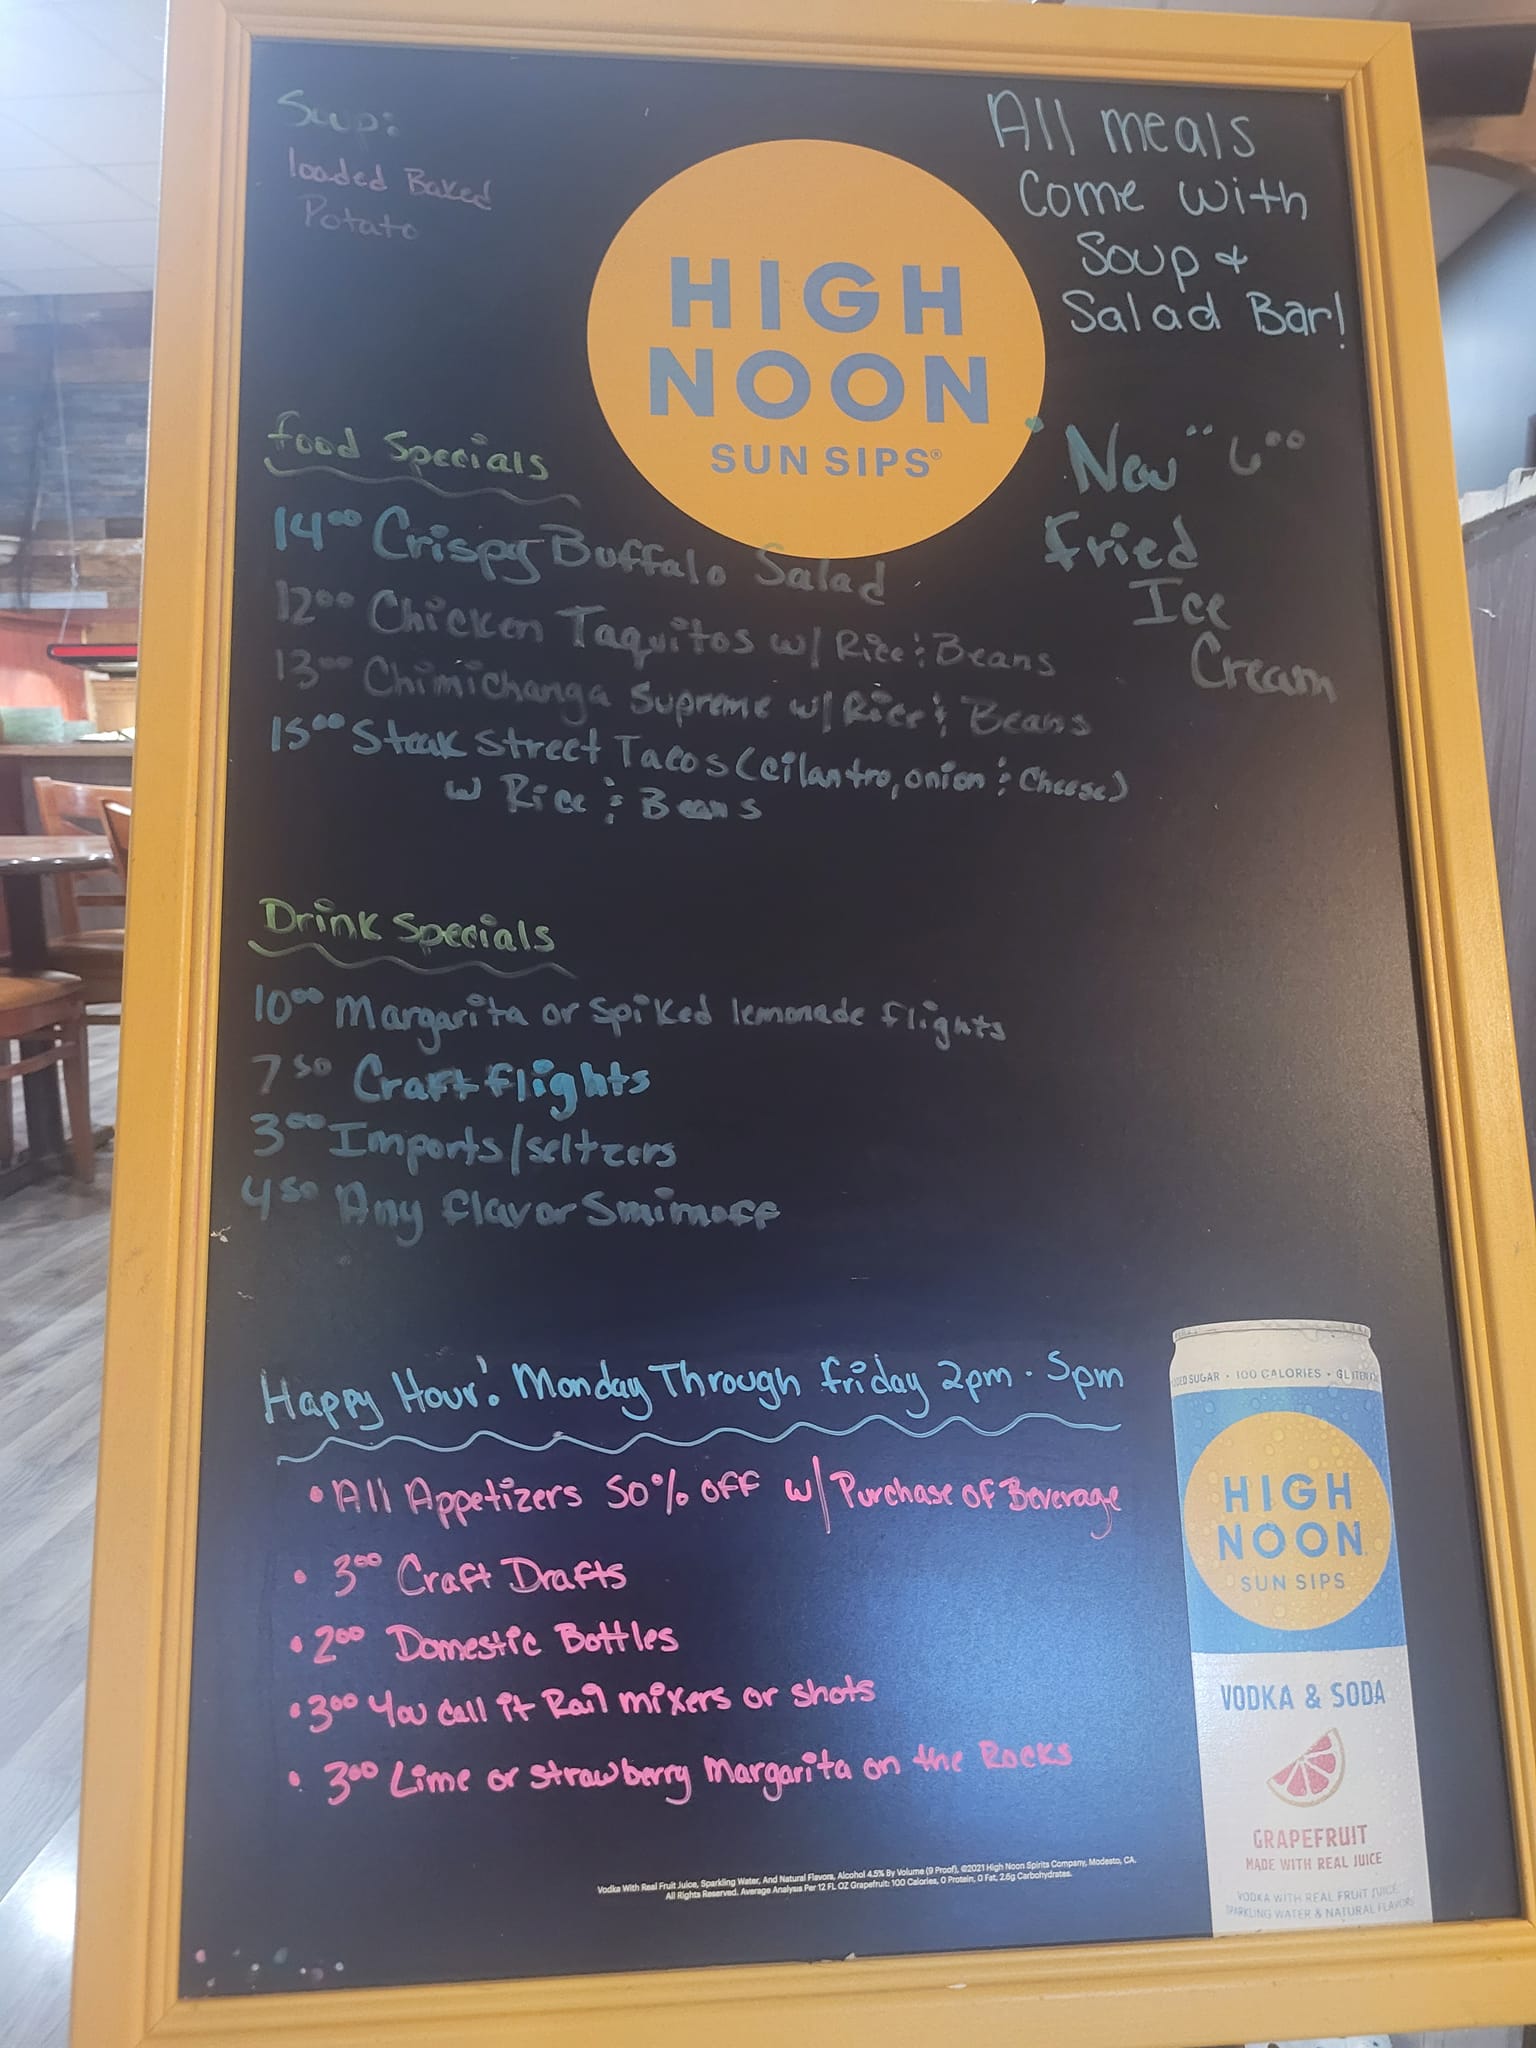 Soup:
loaded Baked
Potato
All meals
Come with
Soup &
Salad Bar!
HIGH
NOON
SUN SIPS®
"New" 6⁰⁰
Fried
Ice
Cream
Food Specials
14⁰⁰ Crispy Buffalo Salad
12⁰⁰ Chicken Taquitos w/ Rice & Beans
13⁰⁰ Chimichanga Supreme w/ Rice & Beans
15⁰⁰ Steak Street Tacos (cilantro, onion & Cheese)
w Rice & Beans
Drink Specials
10⁰⁰ Margarita or Spiked lemonade flights
7⁵⁰ Craft flights
3⁰⁰ Imports/seltzers
4⁵⁰ Any flavor Smirnoff
Happy Hour! Monday Through Friday 2pm - 5pm
• All Appetizers 50% off w/ Purchase of Beverage
• 3⁰⁰ Craft Drafts
• 2⁰⁰ Domestic Bottles
• 3⁰⁰ You call it Rail mixers or shots
• 3⁰⁰ Lime or strawberry Margarita on the Rocks
SUGAR • 100 CALORIES •
HIGH
NOON
SUN SIPS
VODKA & SODA
GRAPEFRUIT
MADE WITH REAL JUICE
VODKA WITH REAL FRUIT JUICE,
SPARKLING WATER & NATURAL FLAVORS
Vodka With Real Fruit Juice, Sparkling Water, And Natural Flavors, Alcohol 4.5% By Volume (9 Proof), ©2021 High Noon Spirits Company, Modesto, CA.
All Rights Reserved. Average Analysis Per 12 FL OZ Grapefruit: 100 Calories, 0 Protein, 0 Fat, 2.6g Carbohydrates.